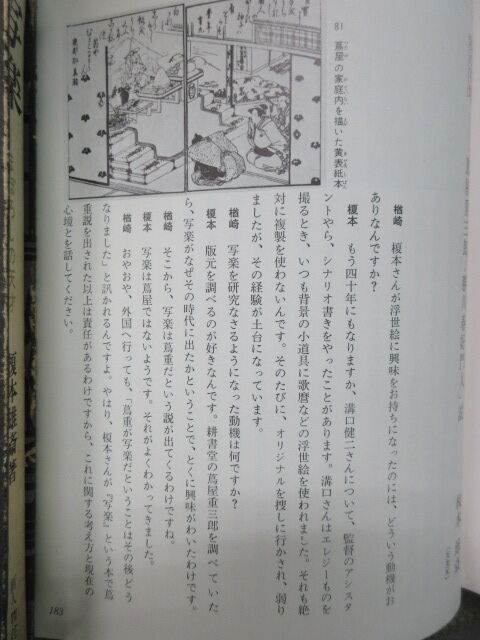 81 蔦屋の家庭内を描いた黄表紙本
楢崎　榎本さんが浮世絵に興味をお持ちになったのには、どういう動機がお
ありなんですか？
榎本　もう四十年にもなりますか、溝口健二さんについて、監督のアシスタ
ントやら、シナリオ書きをやったことがあります。溝口さんはエレジーものを
撮るとき、いつも背景の小道具に歌麿などの浮世絵を使われました。それも絶
対に複製を使わないんです。そのたびに、オリジナルを捜しに行かされ、弱り
ましたが、その経験が土台になっています。
楢崎　写楽を研究なさるようになった動機は何ですか？
榎本　版元を調べるのが好きなんです。耕書堂の蔦屋重三郎を調べていた
ら、写楽がなぜその時代に出たかということで、とくに興味がわいたわけです。
楢崎　そこから、写楽は蔦重だという説が出てくるわけですね。
榎本　写楽は蔦屋ではないようです。それがよくわかってきました。
楢崎　おやおや、外国へ行っても、「蔦重が写楽だということはその後どう
なりました」と訊かれるんですよ。やはり、榎本さんが『写楽』という本で蔦
重説を出された以上は責任があるわけですから、これに関する考え方と現在の
心境とを話してください。
183
写楽
榎本雄斎著